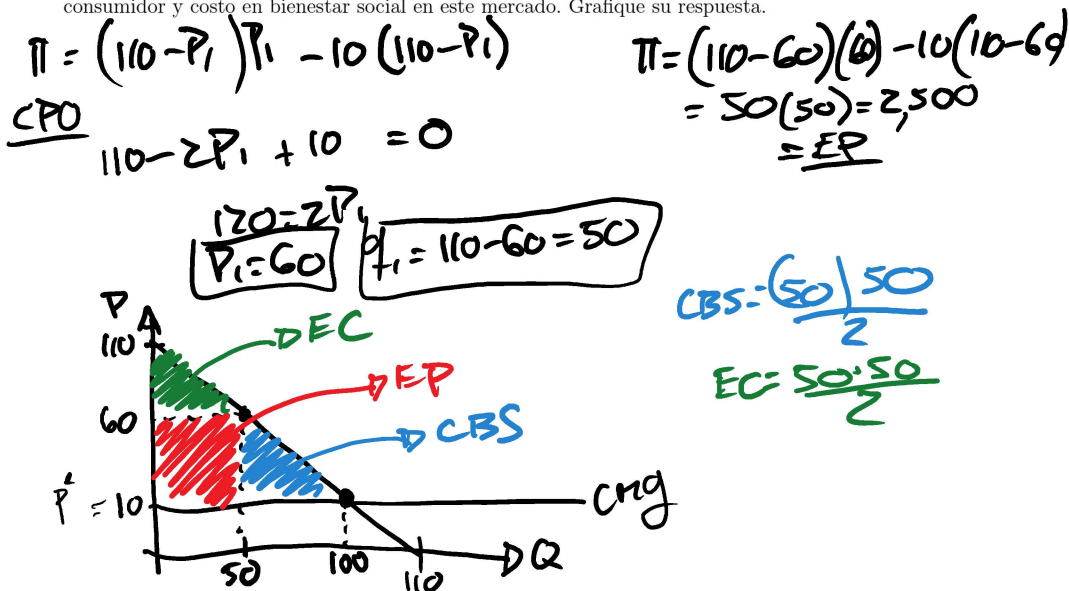 consumidor y costo en bienestar social en este mercado. Grafique su respuesta.
π = (110-P₁)P₁ - 10(110-P₁)
CPO
110-2P₁ + 10 = 0
120=2P₁
P₁=60
q₁ = 110-60=50
π=(110-60)(60)-10(110-60
= 50(50)=2,500
= EP
CBS=(50)50
2
EC= 50·50
2
P
110
EC
EP
60
CBS
= 10
cmg
50
100
110
Q